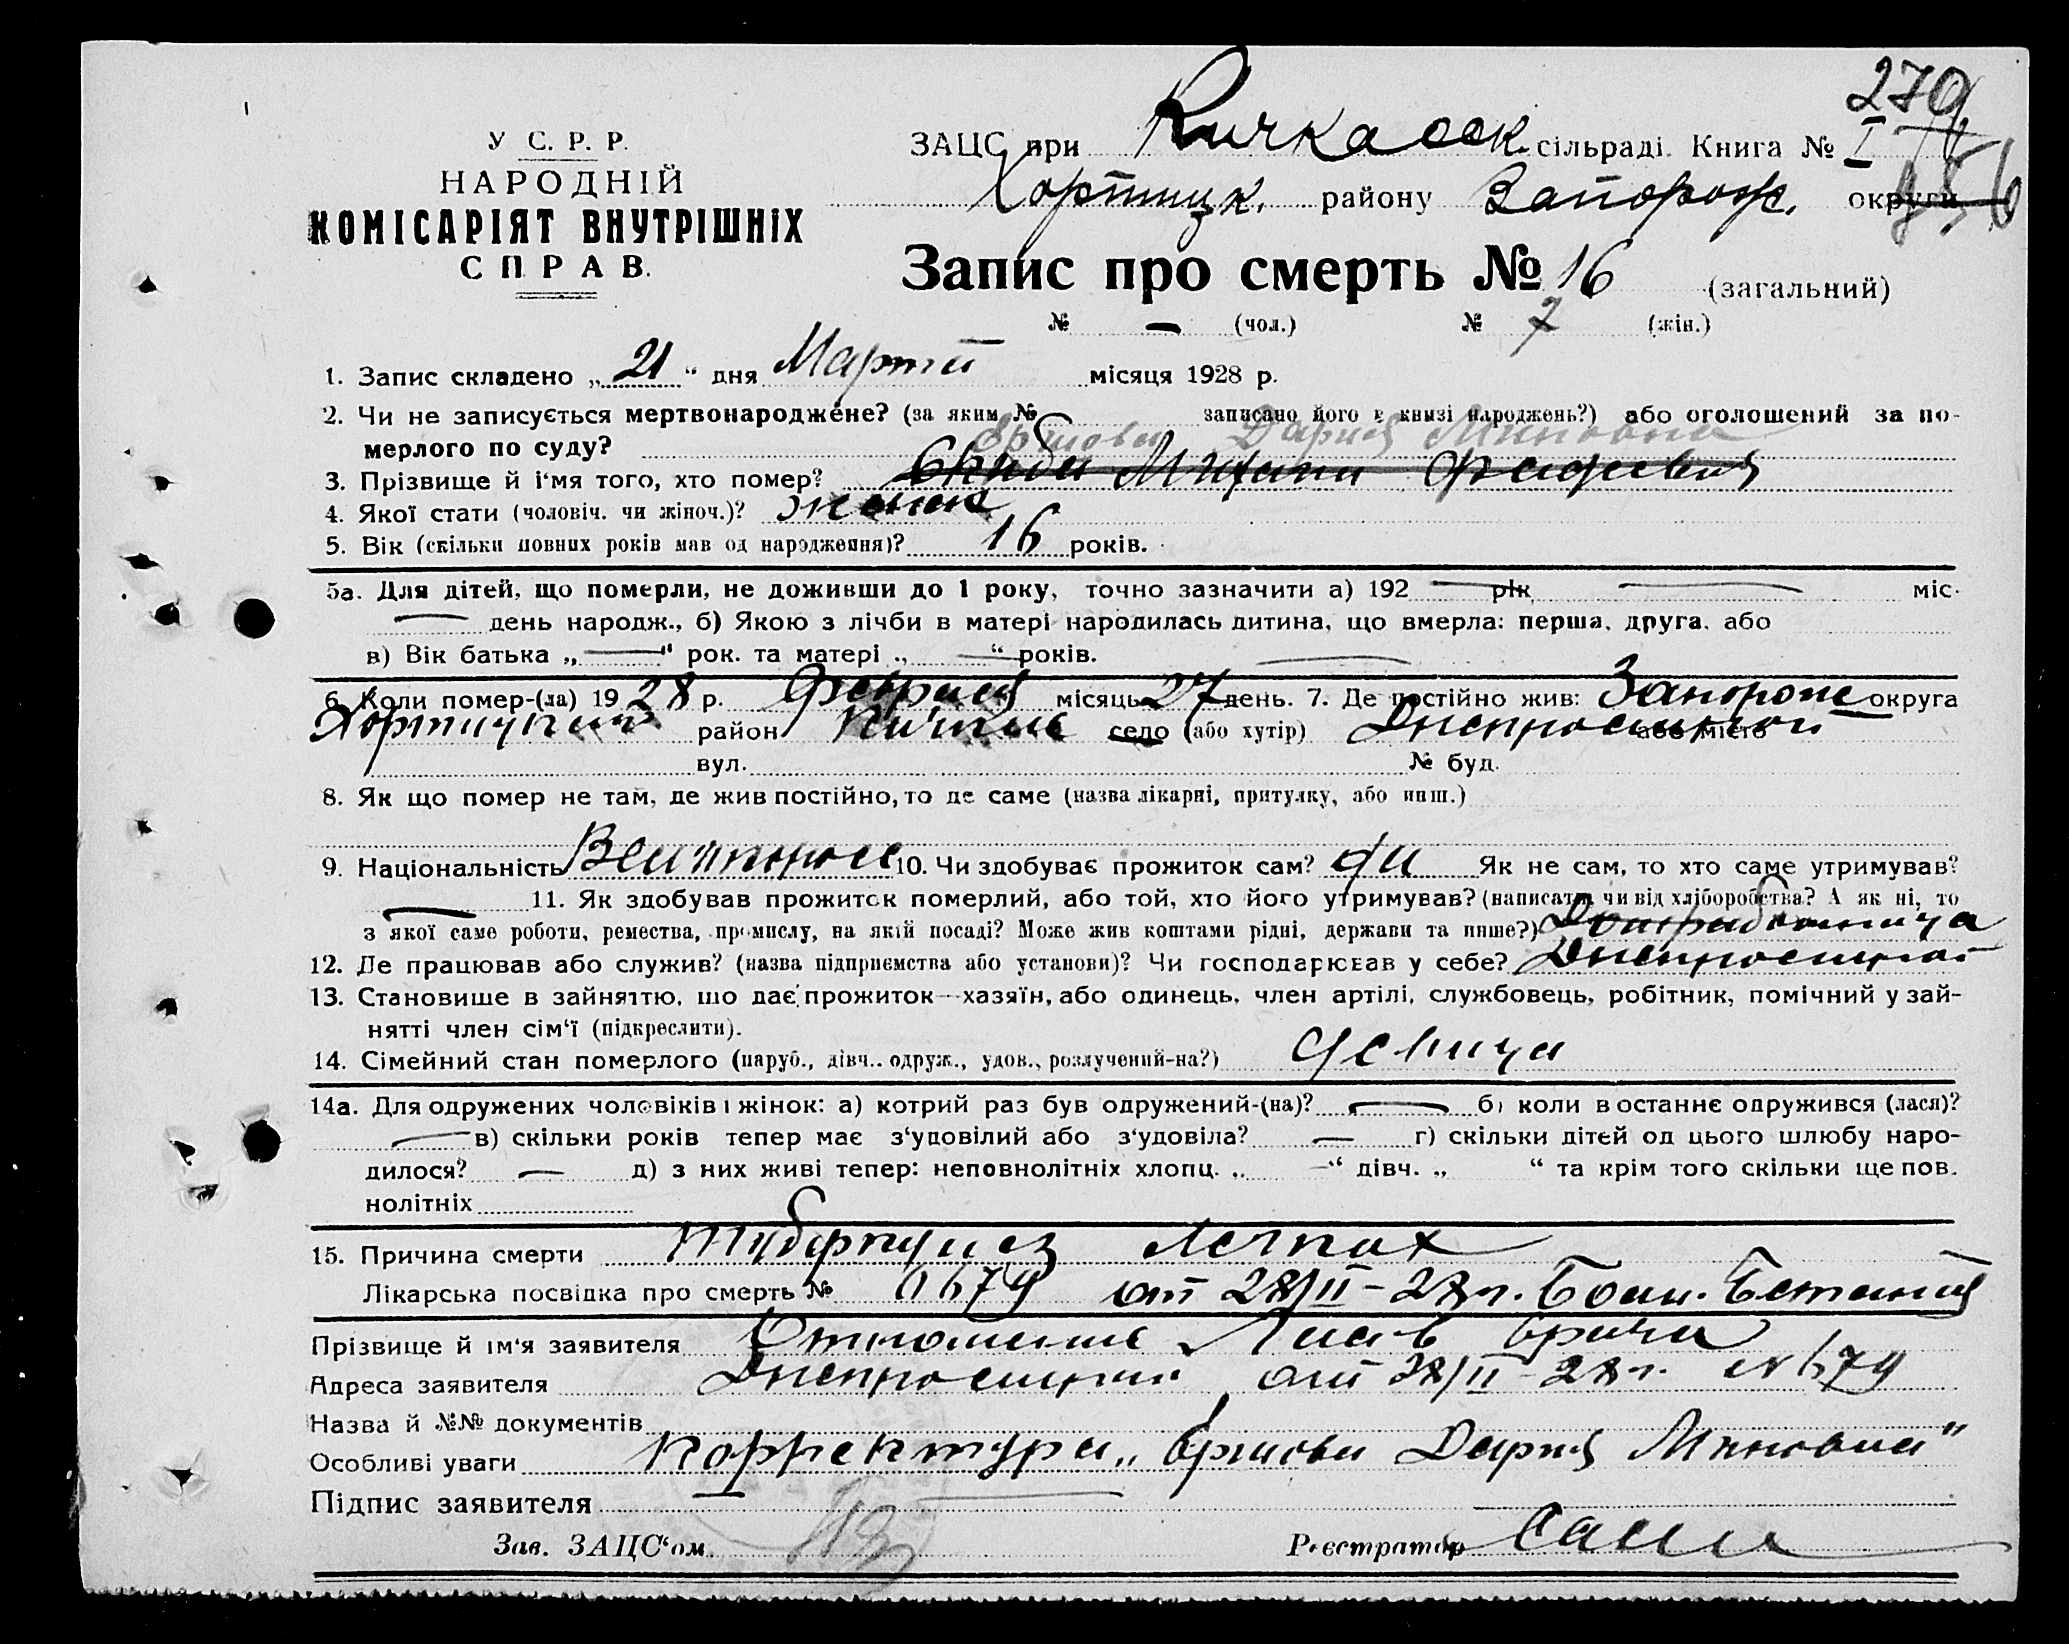 У С. Р. Р.
НАРОДНІЙ
КОМІСАРІЯТ ВНУТРІШНІХ
СПРАВ.
279
ЗАЦС при Кичкасск. сільраді. Книга № I
Хортицк. району Запорож. округи
Запис про смерть № 16 (загальний)
№ — (чол.) № 7 (жін.)
1. Запис складено „ 21 “ дня Марта місяця 1928 р.
2. Чи не записується мертвонароджене? (за яким № записано його в книзі народжень?) або оголошений за по-
мерлого по суду?
Ершова Дария Миновна
3. Прізвище й і'мя того, хто помер?
4. Якої стати (чоловіч. чи жіноч.)? женск
5. Вік (скільки повних років мав од народження)? 16 років.
5а. Для дітей, що померли, не доживши до 1 року, точно зазначити а) 192 — рік — міс.
— день народж., б) Якою з лічби в матері народилась дитина, що вмерла: перша, друга, або
в) Вік батька „ — “ рок. та матері „ — “ років. —
6. Коли помер-(ла) 19 28 р. Февраля місяць 27 день. 7. Де постійно жив: Запорож округа
Хортицкий район Кичкас село (або хутір) Днепрострой або місто
вул. № буд.
8. Як що помер не там, де жив постійно, то де саме (назва лікарні, притулку, або инш.)
9. Національність Великоросс 10. Чи здобуває прожиток сам? да Як не сам, то хто саме утримував?
— 11. Як здобував прожиток померлий, або той, хто його утримував? (написати чи від хліборобства? А як ні, то
з якої саме роботи, ремества, промислу, на якій посаді? Може жив коштами рідні, держави та инше?) Домработница
12. Де працював або служив? (назва підприємства або установи)? Чи господарював у себе? Днепрострой
13. Становище в зайняттю, що дає прожиток—хазяїн, або одинець, член артілі, службовець, робітник, помічний у зай-
нятті член сім'ї (підкреслити).
14. Сімейний стан померлого (паруб., дівч.. одруж., удов., розлучений-на?) девица
14а. Для одружених чоловіків і жінок: а) котрий раз був одружений-(на)? — б) коли в останнє одружився (лася)?
— в) скільки років тепер має з'удовілий або з'удовіла? — г) скільки дітей од цього шлюбу наро-
дилося? — д) з них живі тепер: неповнолітніх хлопц. „ —“ дівч. „ “ та крім того скільки ще пов.
нолітніх
15. Причина смерти туберкулез легких
Лікарська посвідка про смерть № 679 от 28/II–28 г.
Прізвище й ім'я заявителя Отношение Глав врача
Адреса заявителя Днепростроя от 28/II–28 г. № 679
Назва й №№ документів
Особливі уваги Корректура „Ершова Дария Миновна“
Підпис заявителя
Зав. ЗАЦС'ом. Реєстратор